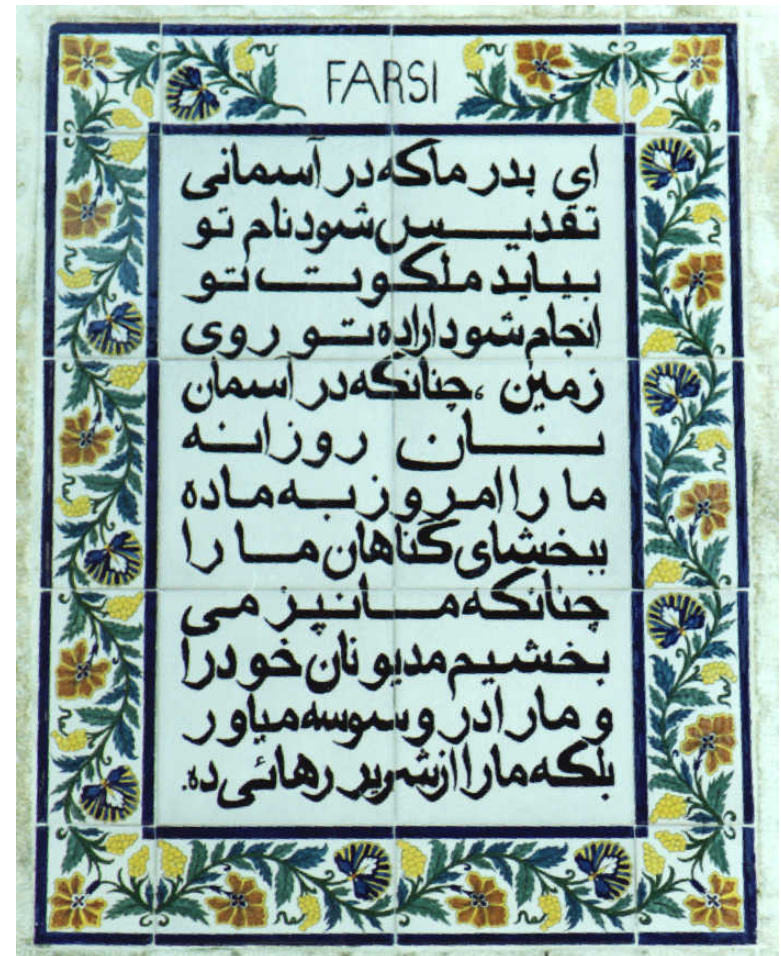 FARSI
ای پدر ماکه در آسمانی
تقدیس شود نام تو
بیاید ملکوت تو
انجام شود اراده تو روی
زمین ، چنانکه در آسمان
نان روزانه
ما را امروز به ماده
ببخشای گناهان ما را
چنانکه ما نیز می
بخشیم مدیونان خود را
و مارا در وسوسه میاور
بلکه مارا از شریر رهائی ده.